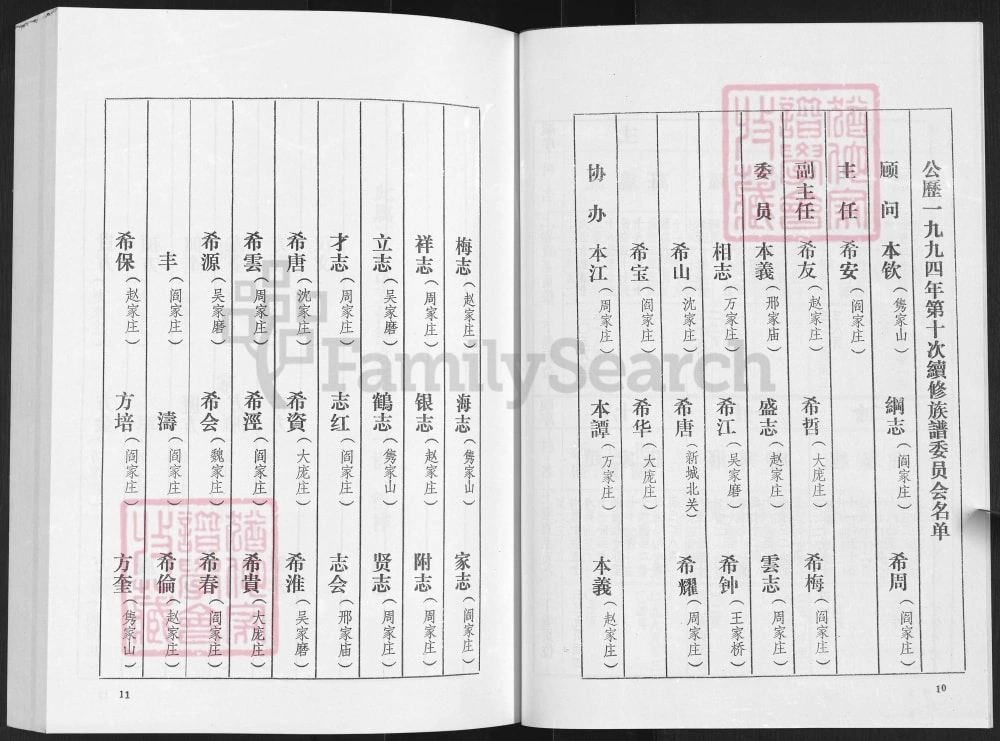 公歷一九九四年第十次續修族譜委员会名单
顾问 本钦（隽家山） 綱志（阎家庄） 希周（阎家庄）
主任 希安（阎家庄）
副主任 希友（赵家庄） 希哲（大庞庄） 希梅（阎家庄）
委员 本義（邢家庙） 盛志（赵家庄） 雲志（周家庄）
相志（万家庄） 希江（吴家磨） 希钟（王家桥）
希山（沈家庄） 希唐（新城北关） 希耀（周家庄）
希宝（阎家庄） 希华（大庞庄）
协办 本江（周家庄） 本譚（万家庄） 本義（赵家庄）
10
梅志（赵家庄） 海志（隽家山） 家志（阎家庄）
祥志（周家庄） 银志（赵家庄） 附志（周家庄）
立志（吴家磨） 鶴志（隽家山） 贤志（周家庄）
才志（周家庄） 志红（阎家庄） 志会（邢家庙）
希唐（沈家庄） 希資（大庞庄） 希淮（吴家磨）
希雲（周家庄） 希淫（阎家庄） 希貴（大庞庄）
希源（吴家磨） 希会（魏家庄） 希春（阎家庄）
丰（阎家庄） 濤 希倫（赵家庄）
希保（赵家庄） 方培（阎家庄） 方奎（隽家山）
11
FamilySearch